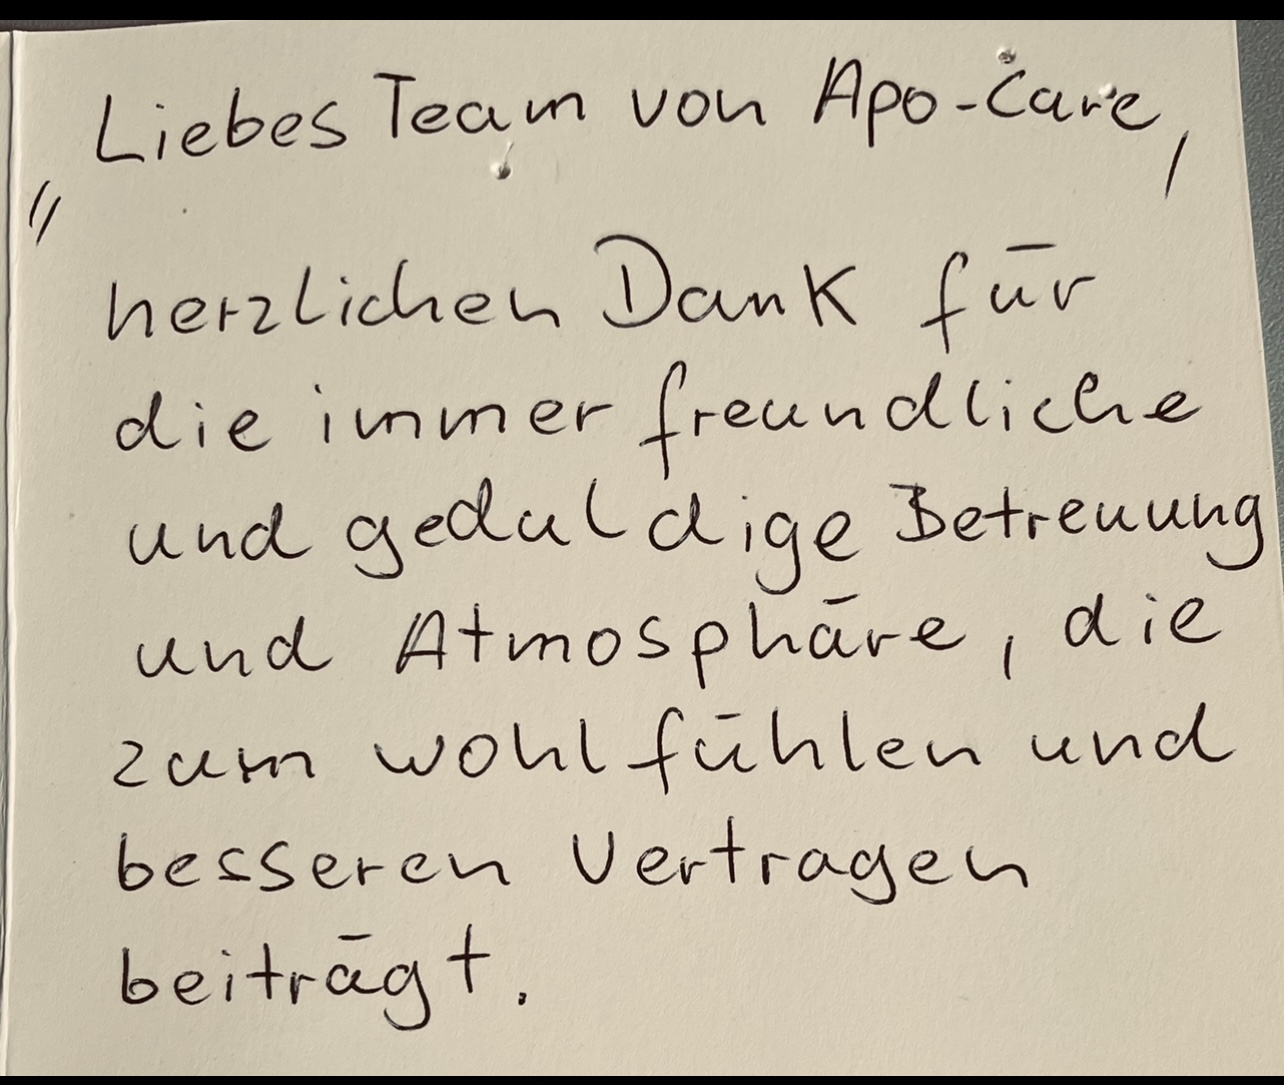 Liebes Team von Apo-Care,
"
herzlichen Dank für
die immer freundliche
und geduldige Betreuung
und Atmosphäre, die
zum wohlfühlen und
besseren Vertragen
beiträgt.